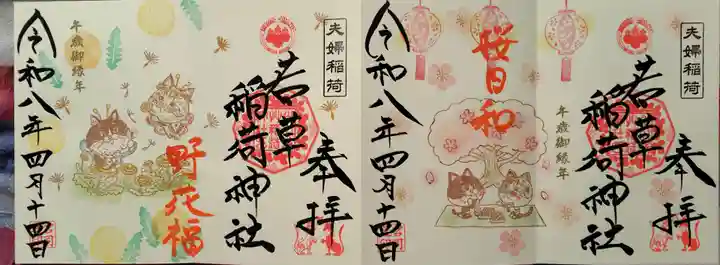 夫婦稲荷
奉拝
若草
稲荷神社
桜日和
午歳御縁年
令和八年四月十四日
夫婦稲荷
奉拝
若草
稲荷神社
野花福
午歳御縁年
令和八年四月十四日